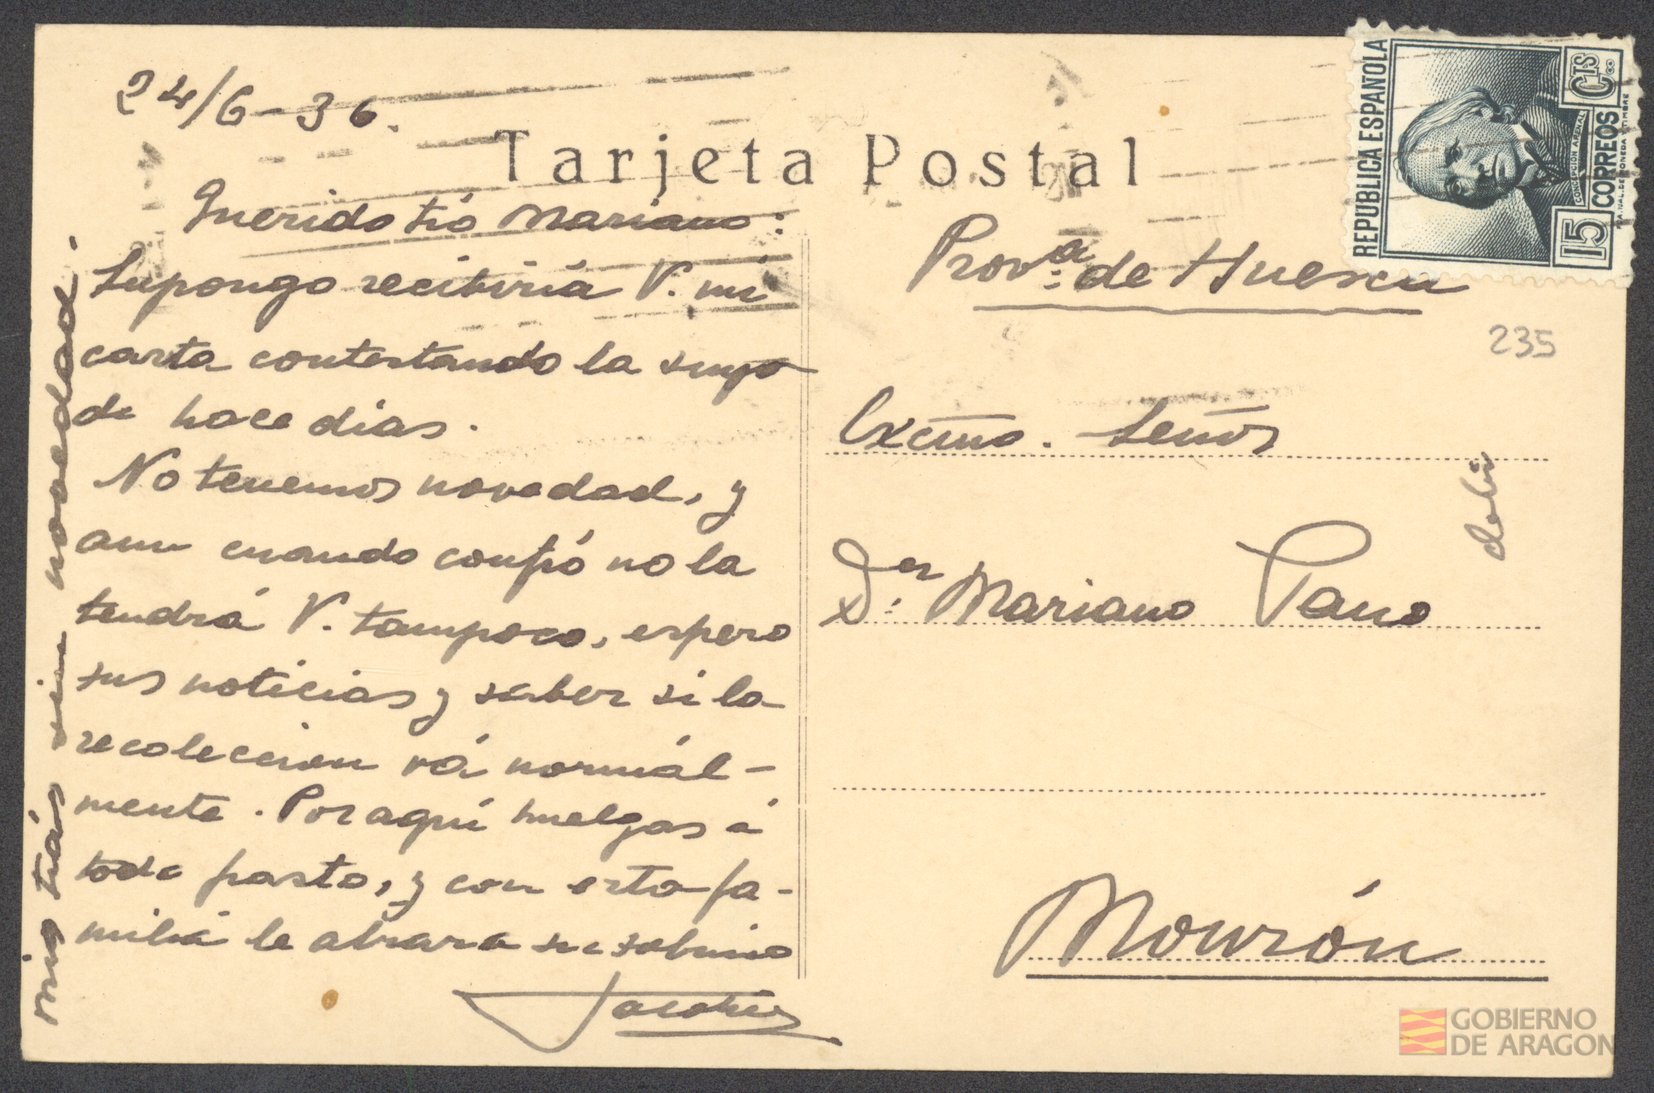 24/6-36.
Tarjeta Postal
Querido tio Mariano:
Supongo recibiriá V. mi
carta contestando la suya
de hace dias.
No tenemos novedad, y
aun cuando confió no la
tendrá V. tampoco, espero
sus noticias y saber si la
recoleccion vá normál-
mente. Por aqui huelgas á
todo pasto, y con esta fa-
miliá le abraza su sobrino
mis tiás sin novedad.
REPUBLICA ESPAÑOLA
15 CTS
CORREOS
CONCEPCION ARENAL
Provª de Huesca
235
Excmo. Señor
Dn. Mariano Pano
Monzón
GOBIERNO
DE ARAGON